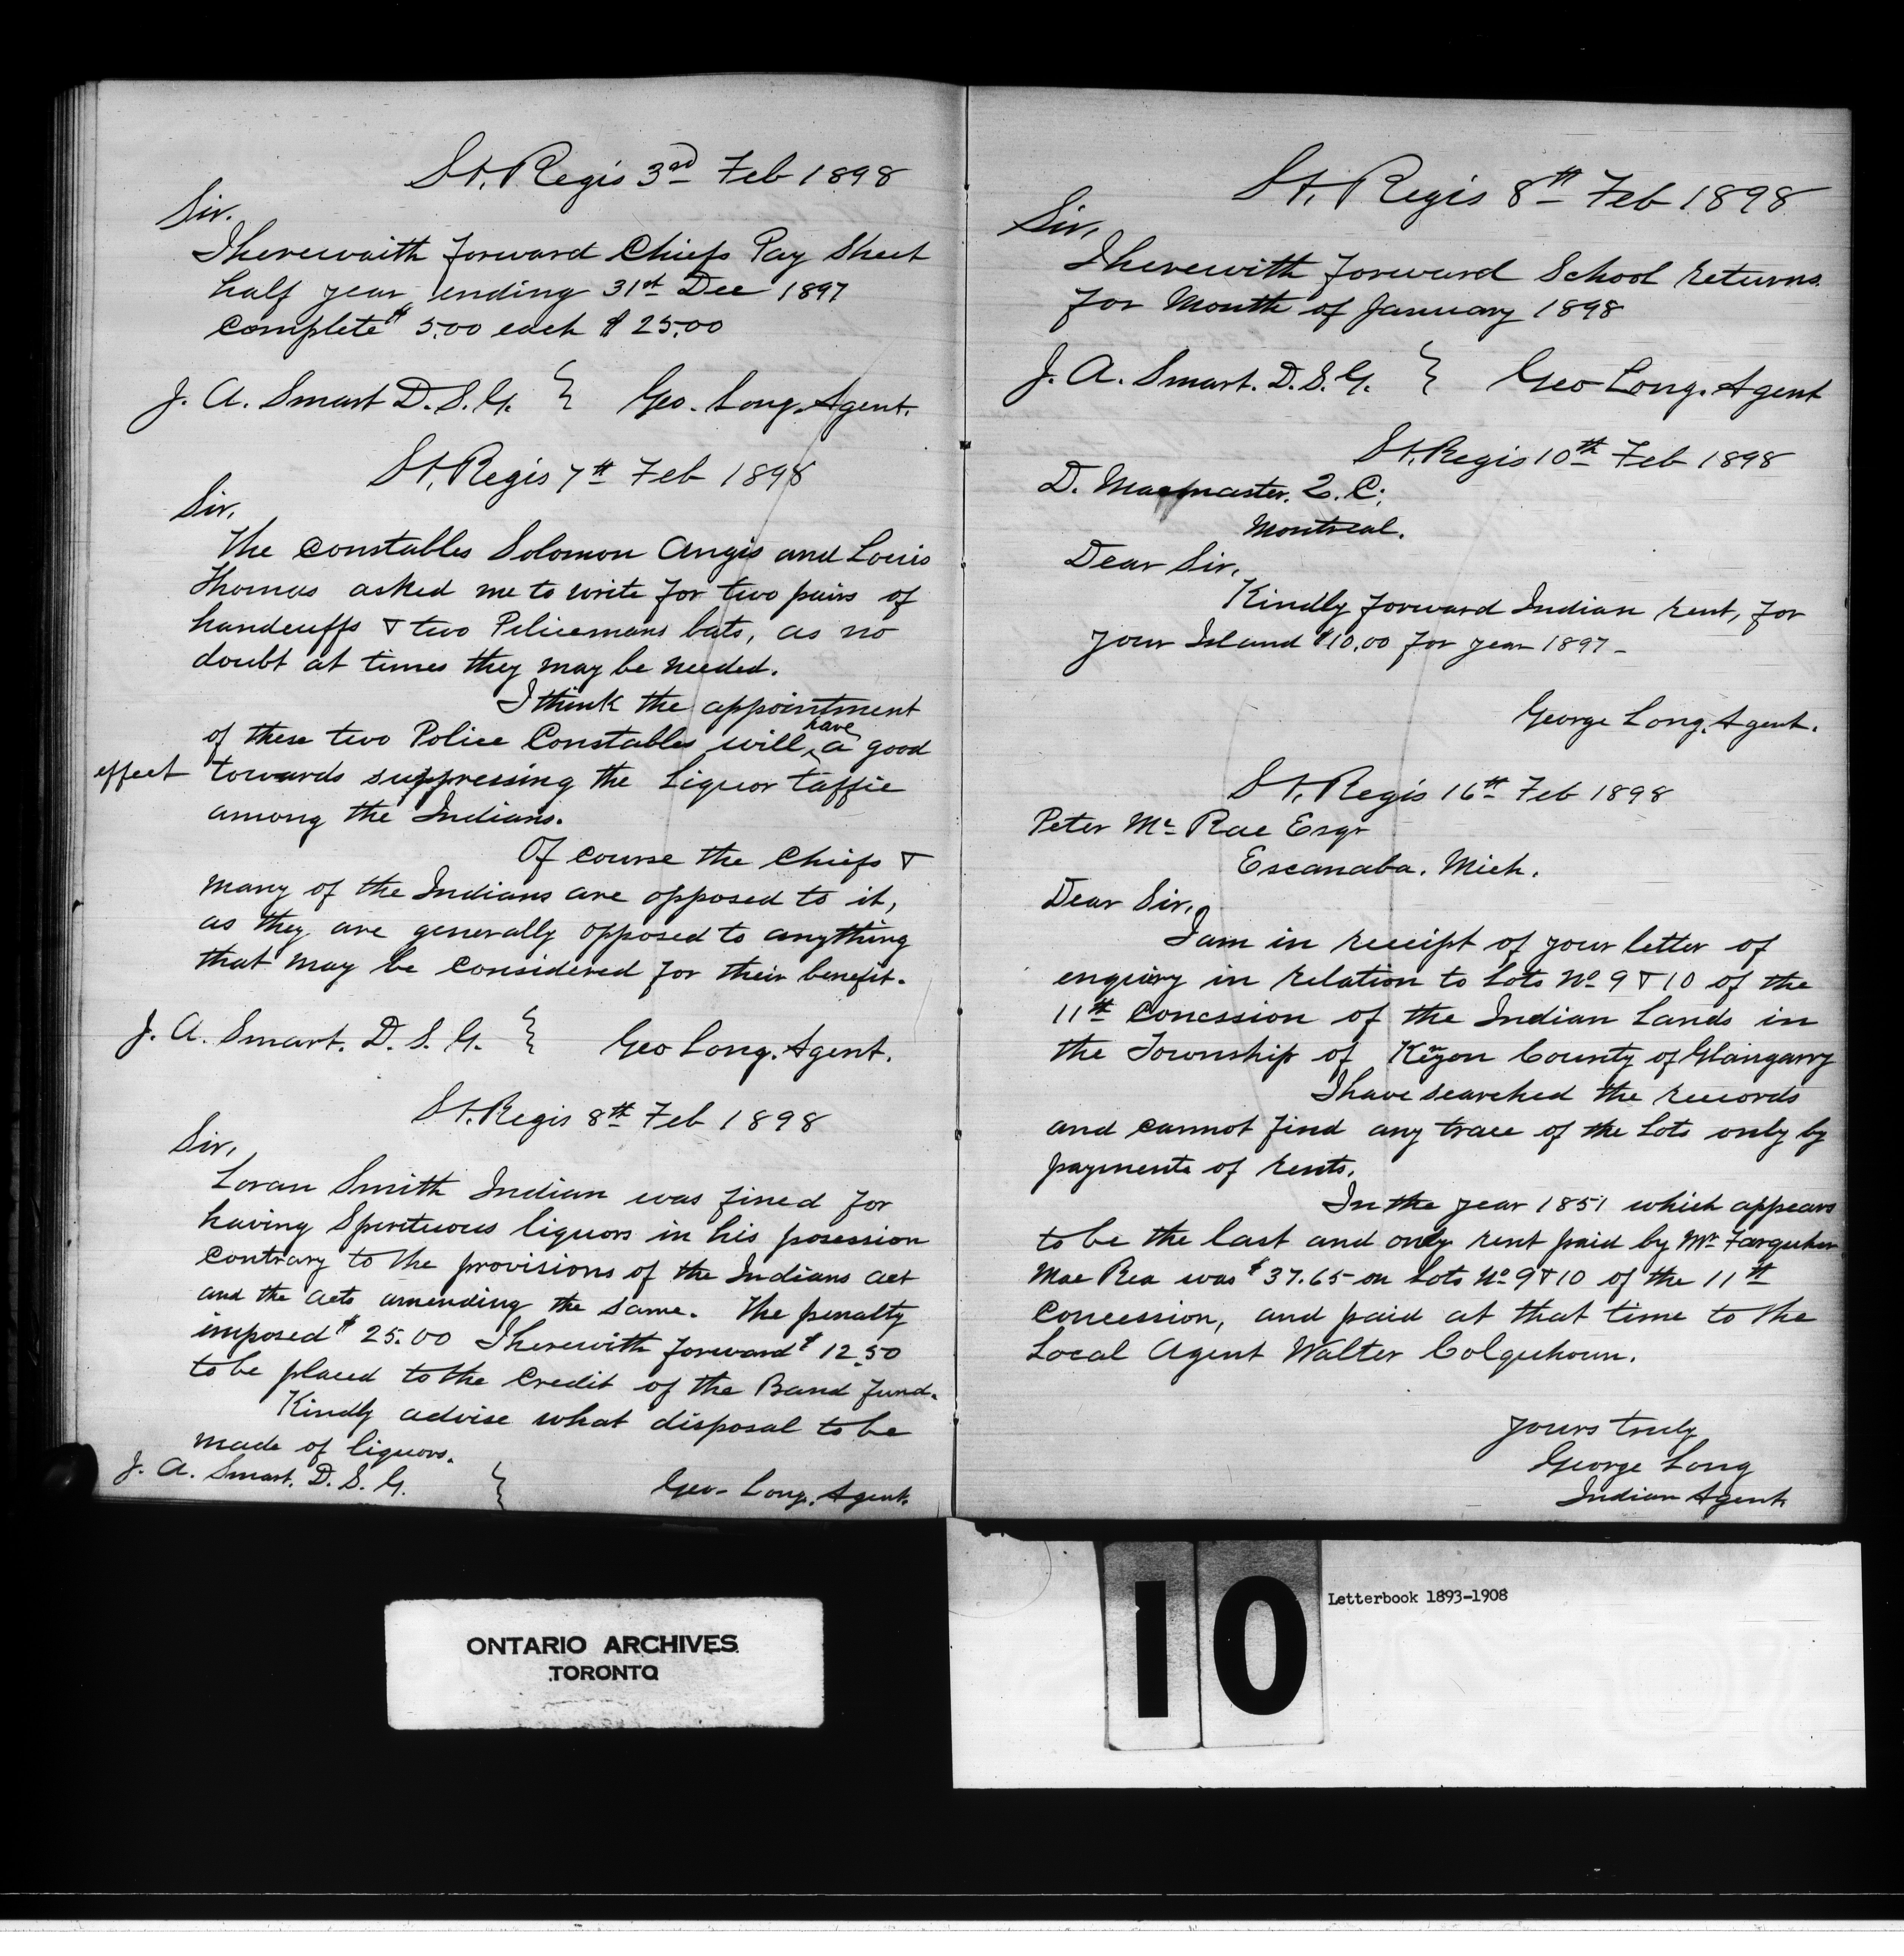 St. Regis 3rd Feb 1898
Sir.
I herewaith forward Chiefs Pay Sheet
half year ending 31st Dec 1897
complete $ 5.00 each $ 25.00
J. A. Smart D. S. G. } Geo. Long. Agent.
St. Regis 7th Feb 1898
Sir.
The constables Solomon Angis and Louis
Thomas asked me to write for two pairs of
handcuffs & two Policemans bats, as no
doubt at times they may be needed.
I think the appointment
of these two Police Constables will have a good
effect towards suppressing the Liquor taffic
among the Indians.
Of course the Chiefs &
many of the Indians are opposed to it,
as they are generally opposed to anything
that may be considered for their benefit.
J. A. Smart. D. S. G. } Geo Long. Agent.
St. Regis 8th Feb 1898
Sir,
Loran Smith Indian was fined for
having Spirituous liquors in his posession
contrary to the provisions of the Indians act
and the acts amending the same. The penalty
imposed $ 25.00 I herewith forward $ 12.50
to be placed to the credit of the Band fund.
Kindly advise what disposal to be
made of liquors.
J. A. Smart. D. S. G. } Geo- Long. Agent.
St. Regis 8th Feb 1898
Sir,
I herewith forward School returns
for Month of January 1898
J. A. Smart. D. S. G. } Geo Long. Agent
St. Regis 10th Feb 1898
D. Macmaster. Q. C.
Montreal.
Dear Sir,
Kindly forward Indian rent, for
your Island $10.00 for year 1897-
George Long. Agent.
St. Regis 16th Feb 1898
Peter Mc Rae Esqr
Escanaba. Mich.
Dear Sir,
I am in receipt of your letter of
enquiry in relation to Lots No 9 & 10 of the
11th Concssion of the Indian Lands in
the Township of Kenyon County of Glangarry
I have searched the records
and cannot find any trace of the Lots only by
payments of rents.
In the year 1851 which appears
to be the last and only rent paid by Mr Farquher
Mac Rea was $ 37.65 on Lots No 9 & 10 of the 11th
Concession, and paid at that time to the
Local Agent Walter Colquhoun.
Yours truly
George Long
Indian Agent
ONTARIO ARCHIVES
TORONTO
10
Letterbook 1893-1908